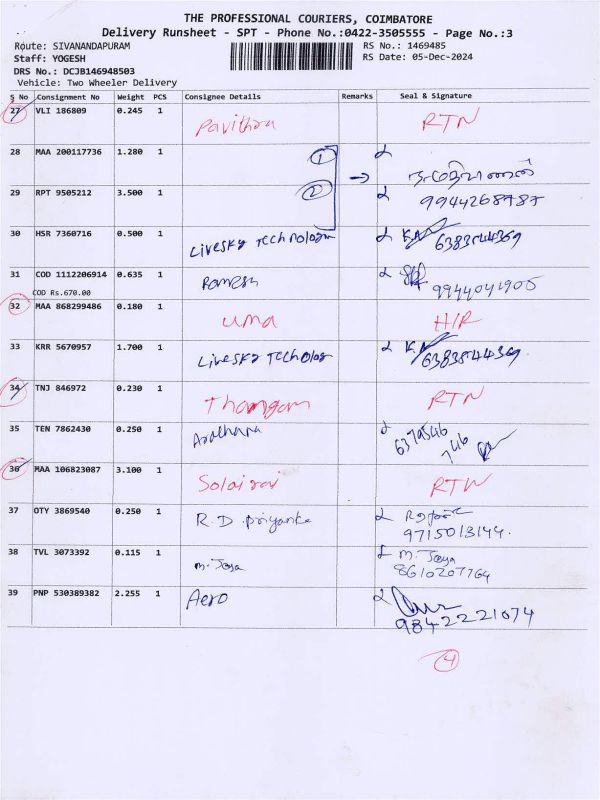 THE PROFESSIONAL COURIERS, COIMBATORE
Delivery Runsheet - SPT - Phone No.:0422-3505555 - Page No.:3
Route: SIVANANDAPURAM
RS No.: 1469485
Staff: YOGESH
RS Date: 05-Dec-2024
DRS No.: DCJB146948503
Vehicle: Two Wheeler Delivery
S No Consignment No Weight PCS Consignee Details Remarks Seal & Signature
27 VLI 186809 0.245 1 Pavithra RTN
28 MAA 200117736 1.280 1 1
29 RPT 9505212 3.500 1 2 9944268787
30 HSR 7360716 0.500 1 LiveSky Technology 6383544369
31 COD 1112206914 0.635 1 Ramesh 9944041905
COD Rs.670.00
32 MAA 868299486 0.180 1 Uma H/R
33 KRR 5670957 1.700 1 LiveSky Techolog 6383544369
34 TNJ 846972 0.230 1 Thangam RTN
35 TEN 7862430 0.250 1 Aradhana 6379546
746
36 MAA 106823087 3.100 1 RTN
37 OTY 3869540 0.250 1 R.D. Priyanka 9715013144.
38 TVL 3073392 0.115 1 M. Jaya M. Jaya
8610207764
39 PNP 530389382 2.255 1 Aero
9842221074
4